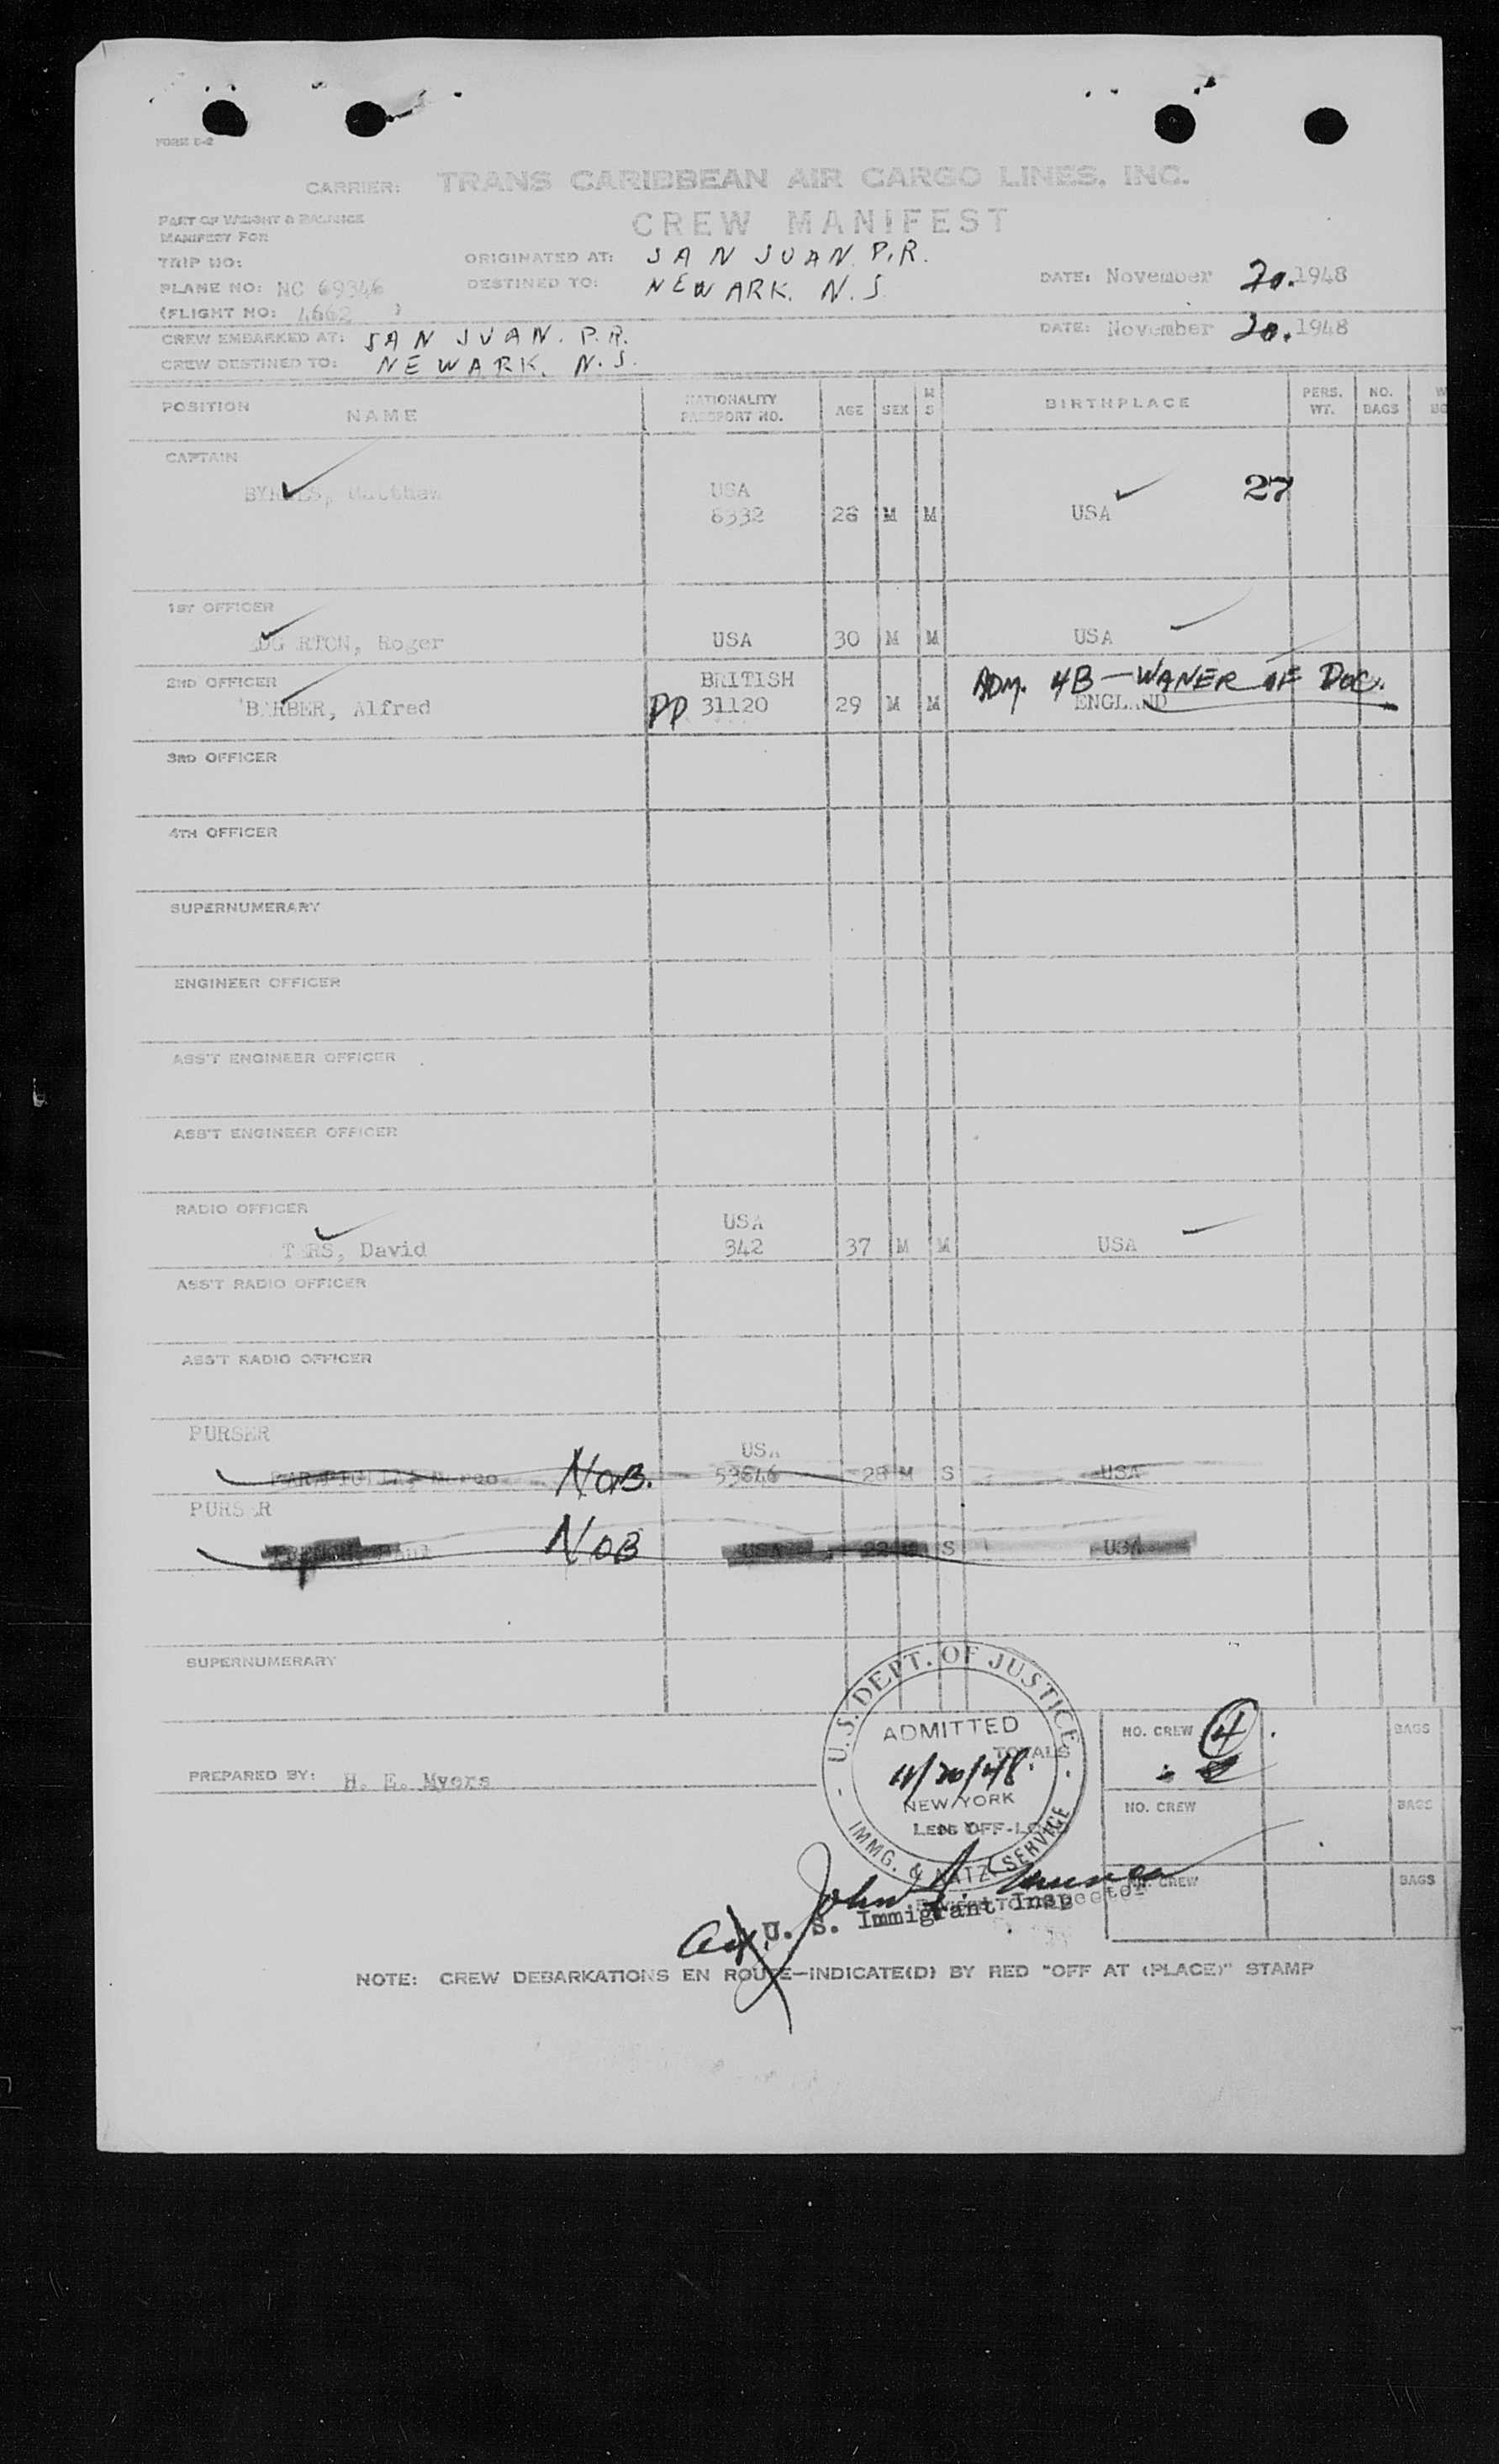 FORM E-2
CARRIER: TRANS CARIBBEAN AIR CARGO LINES, INC.
CREW MANIFEST
PART OF WEIGHT & BALANCE
MANIFEST FOR
TRIP NO:
ORIGINATED AT: SAN JUAN. P.R.
PLANE NO: NC 69346
DESTINED TO: NEWARK. N.J.
DATE: November 20. 1948
(FLIGHT NO: 4662 )
CREW EMBARKED AT: SAN JUAN. P.R.
DATE: November 20. 1948
CREW DESTINED TO: NEWARK. N.J.
POSITION NAME NATIONALITY PASSPORT NO. AGE SEX M S BIRTHPLACE PERS. WT. NO. BAGS
CAPTAIN
BYRNES, Matthew USA 27
8332 28 M M USA
1ST OFFICER
RTON, Roger USA 30 M M USA
2ND OFFICER BRITISH ADM. 4B—WAVER OF DOC.
BARBER, Alfred PP 31120 29 M M ENGLAND
3RD OFFICER
4TH OFFICER
SUPERNUMERARY
ENGINEER OFFICER
ASS'T ENGINEER OFFICER
ASS'T ENGINEER OFFICER
RADIO OFFICER USA
RS, David 342 37 M M USA
ASS'T RADIO OFFICER
ASS'T RADIO OFFICER
PURSER USA
NOB. 53646 28 M S USA
PURSER
NOB USA S USA
SUPERNUMERARY
U.S. DEPT. OF JUSTICE
ADMITTED
TOTALS
NO. CREW 4 BAGS
11/20/48
PREPARED BY: H. E. Myers
NEW YORK
NO. CREW BAGS
LESS OFF-LOAD
IMMG. & NATZ. SERVICE
NO. CREW BAGS
John
U. S. Immigrant Inspector
NOTE: CREW DEBARKATIONS EN ROUTE—INDICATE(D) BY RED "OFF AT (PLACE)" STAMP